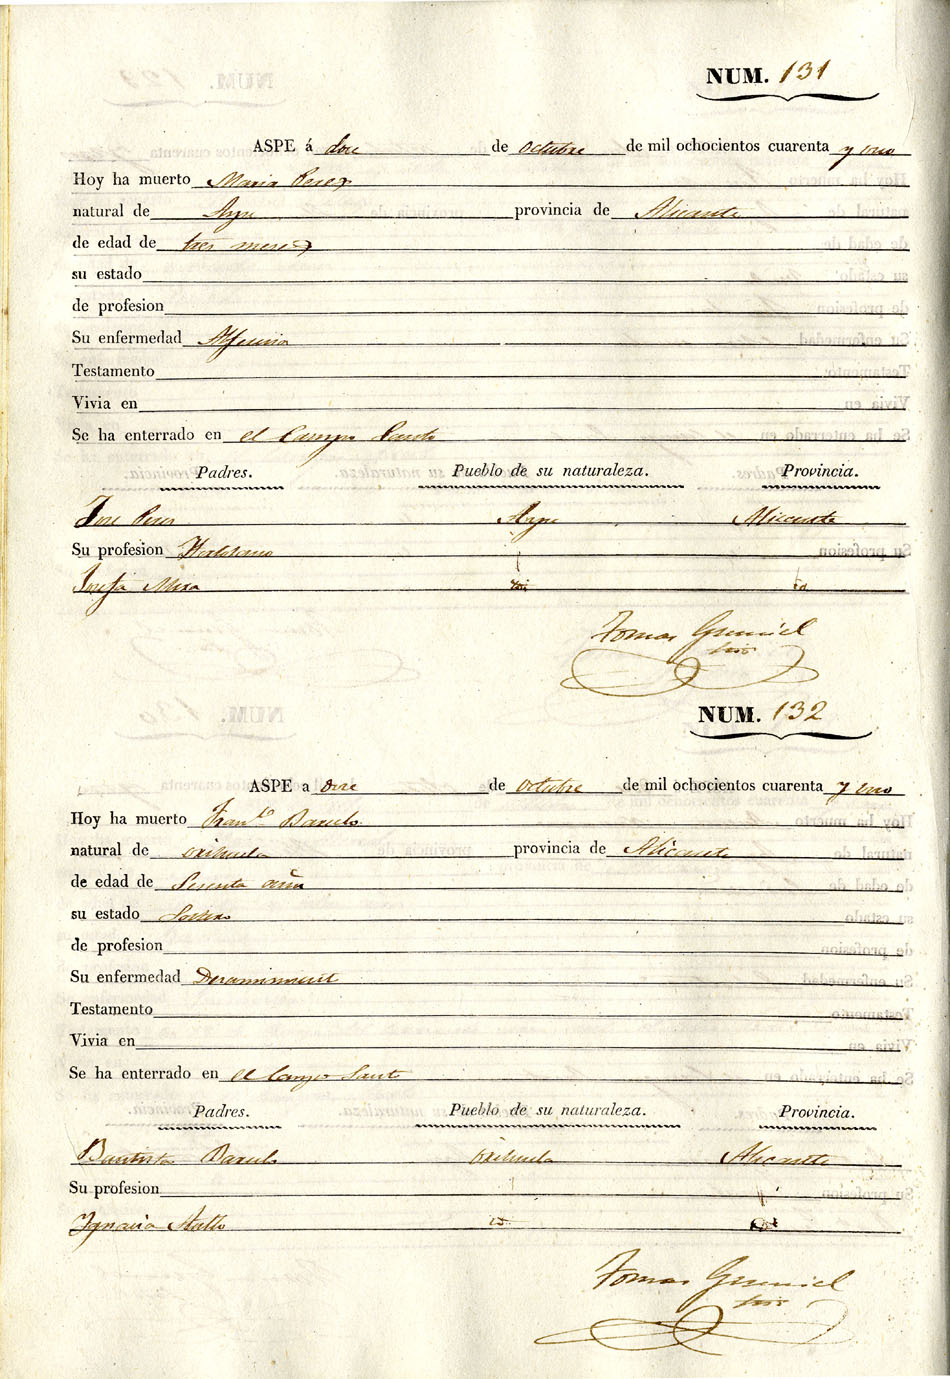 NUM. 131
ASPE á doce de Octubre de mil ochocientos cuarenta y uno
Hoy ha muerto Maria Perez
natural de Aspe provincia de Alicante
de edad de tres meses
su estado
de profesion
Su enfermedad
Testamento
Vivia en
Se ha enterrado en el Campo Santo
Padres. Pueblo de su naturaleza. Provincia.
Jose Perez Aspe Alicante
Su profesion Hortelano
Josefa Mira id. id.
Tomas
NUM. 132
ASPE a doce de Octubre de mil ochocientos cuarenta y uno
Hoy ha muerto Fran.co Barcelo
natural de orihuela provincia de Alicante
de edad de Sesenta años
su estado Soltero
de profesion
Su enfermedad
Testamento
Vivia en
Se ha enterrado en el Campo Santo
Padres. Pueblo de su naturaleza. Provincia.
Bautista Barcelo orihuela Alicante
Su profesion
Ignacia id. id.
Tomas